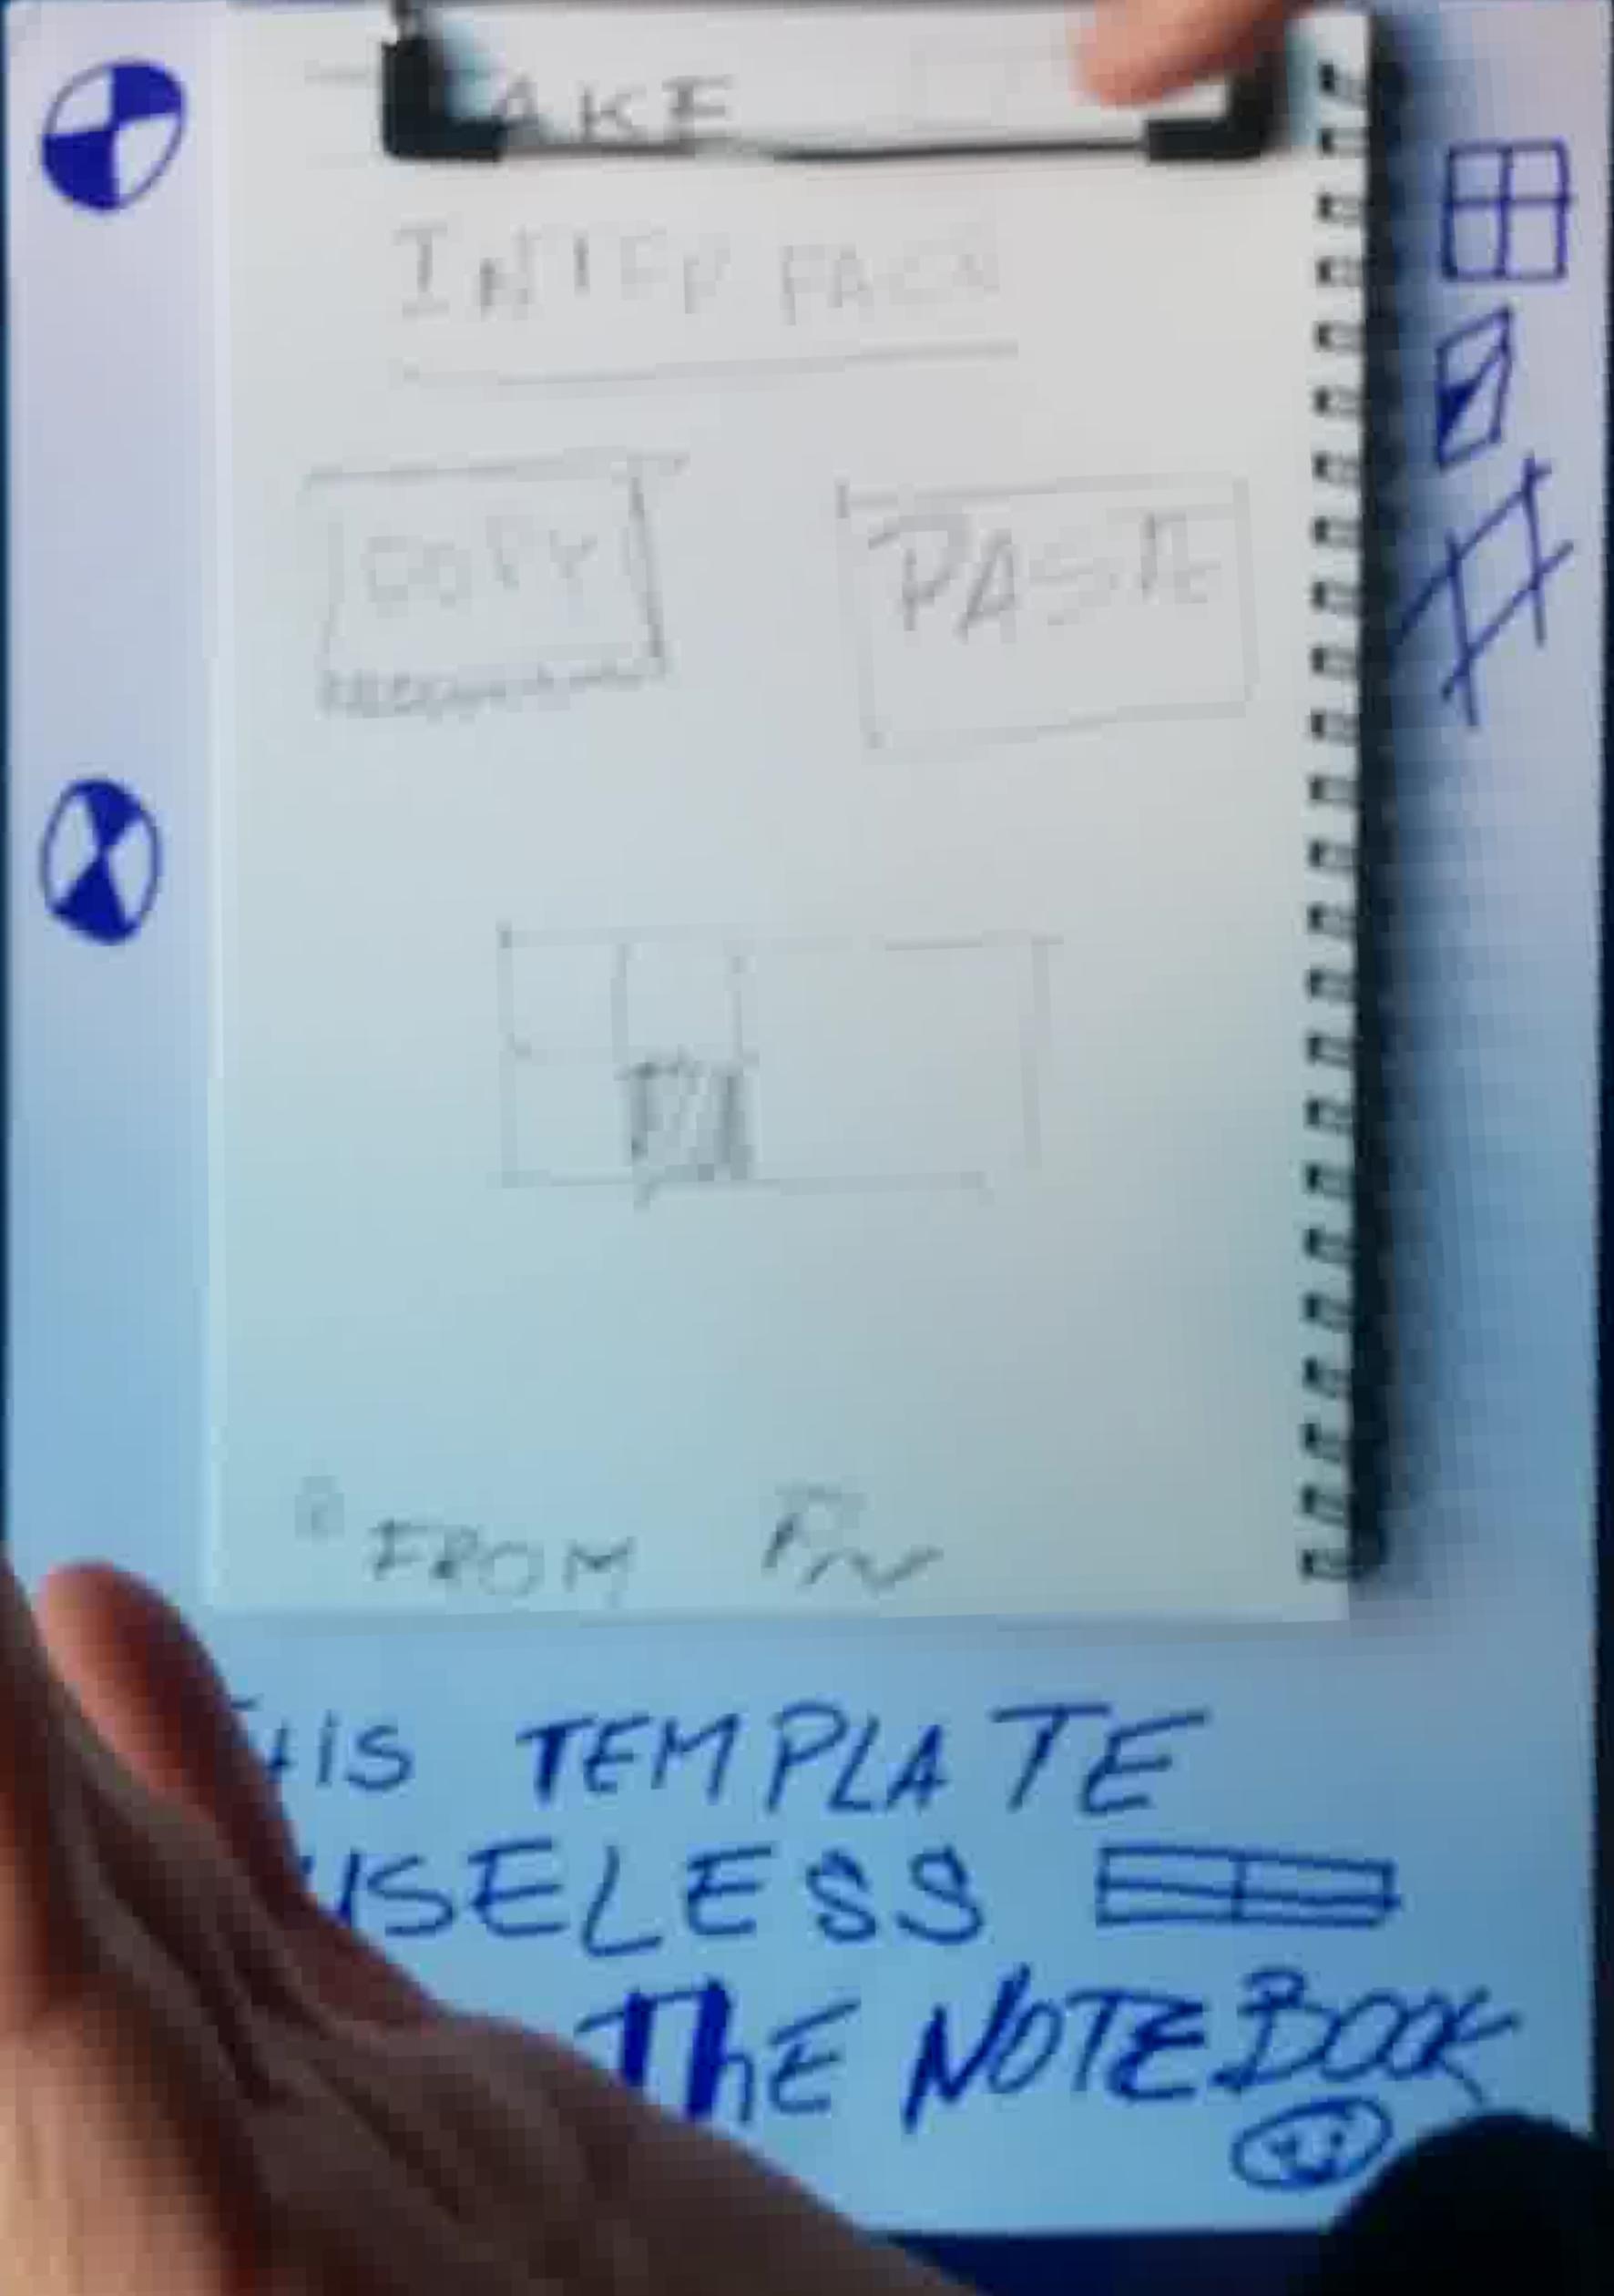 AKE
INTERFACE
COPY PASTE
FROM
THIS TEMPLATE
USELESS
THE NOTEBOOK